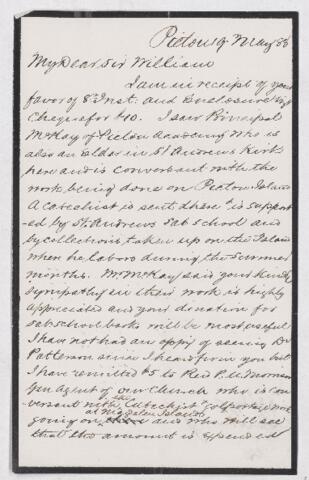 Pictou 19 May 88
My Dear Sir William
I am in receipt of your
favor of 8 Inst. and Enclosure
Cheque for $10. I saw Principal
McKay of Pictou Academy who is
also an Elder in St Andrews Kirk
here and is conversant with the
work being done on Pictou Island
A Catechist is sent there & is support
ed by St Andrews Sab school and
by collections taken up on the Island
when he labors during the Summer
months. Mr McKay said your kindly
sympathy in their work is highly
appreciated and your donation for
sab school books will be most useful
I have not had an oppy of seeing Dr
Patterson since I heard from you but
I have remitted $5 to Rev P. M. Morrison
Gen Agent of our Church who is con
versant with the Catechist & Colportage work
at Magdalen Islands
going on and who will see
that the amount is expended